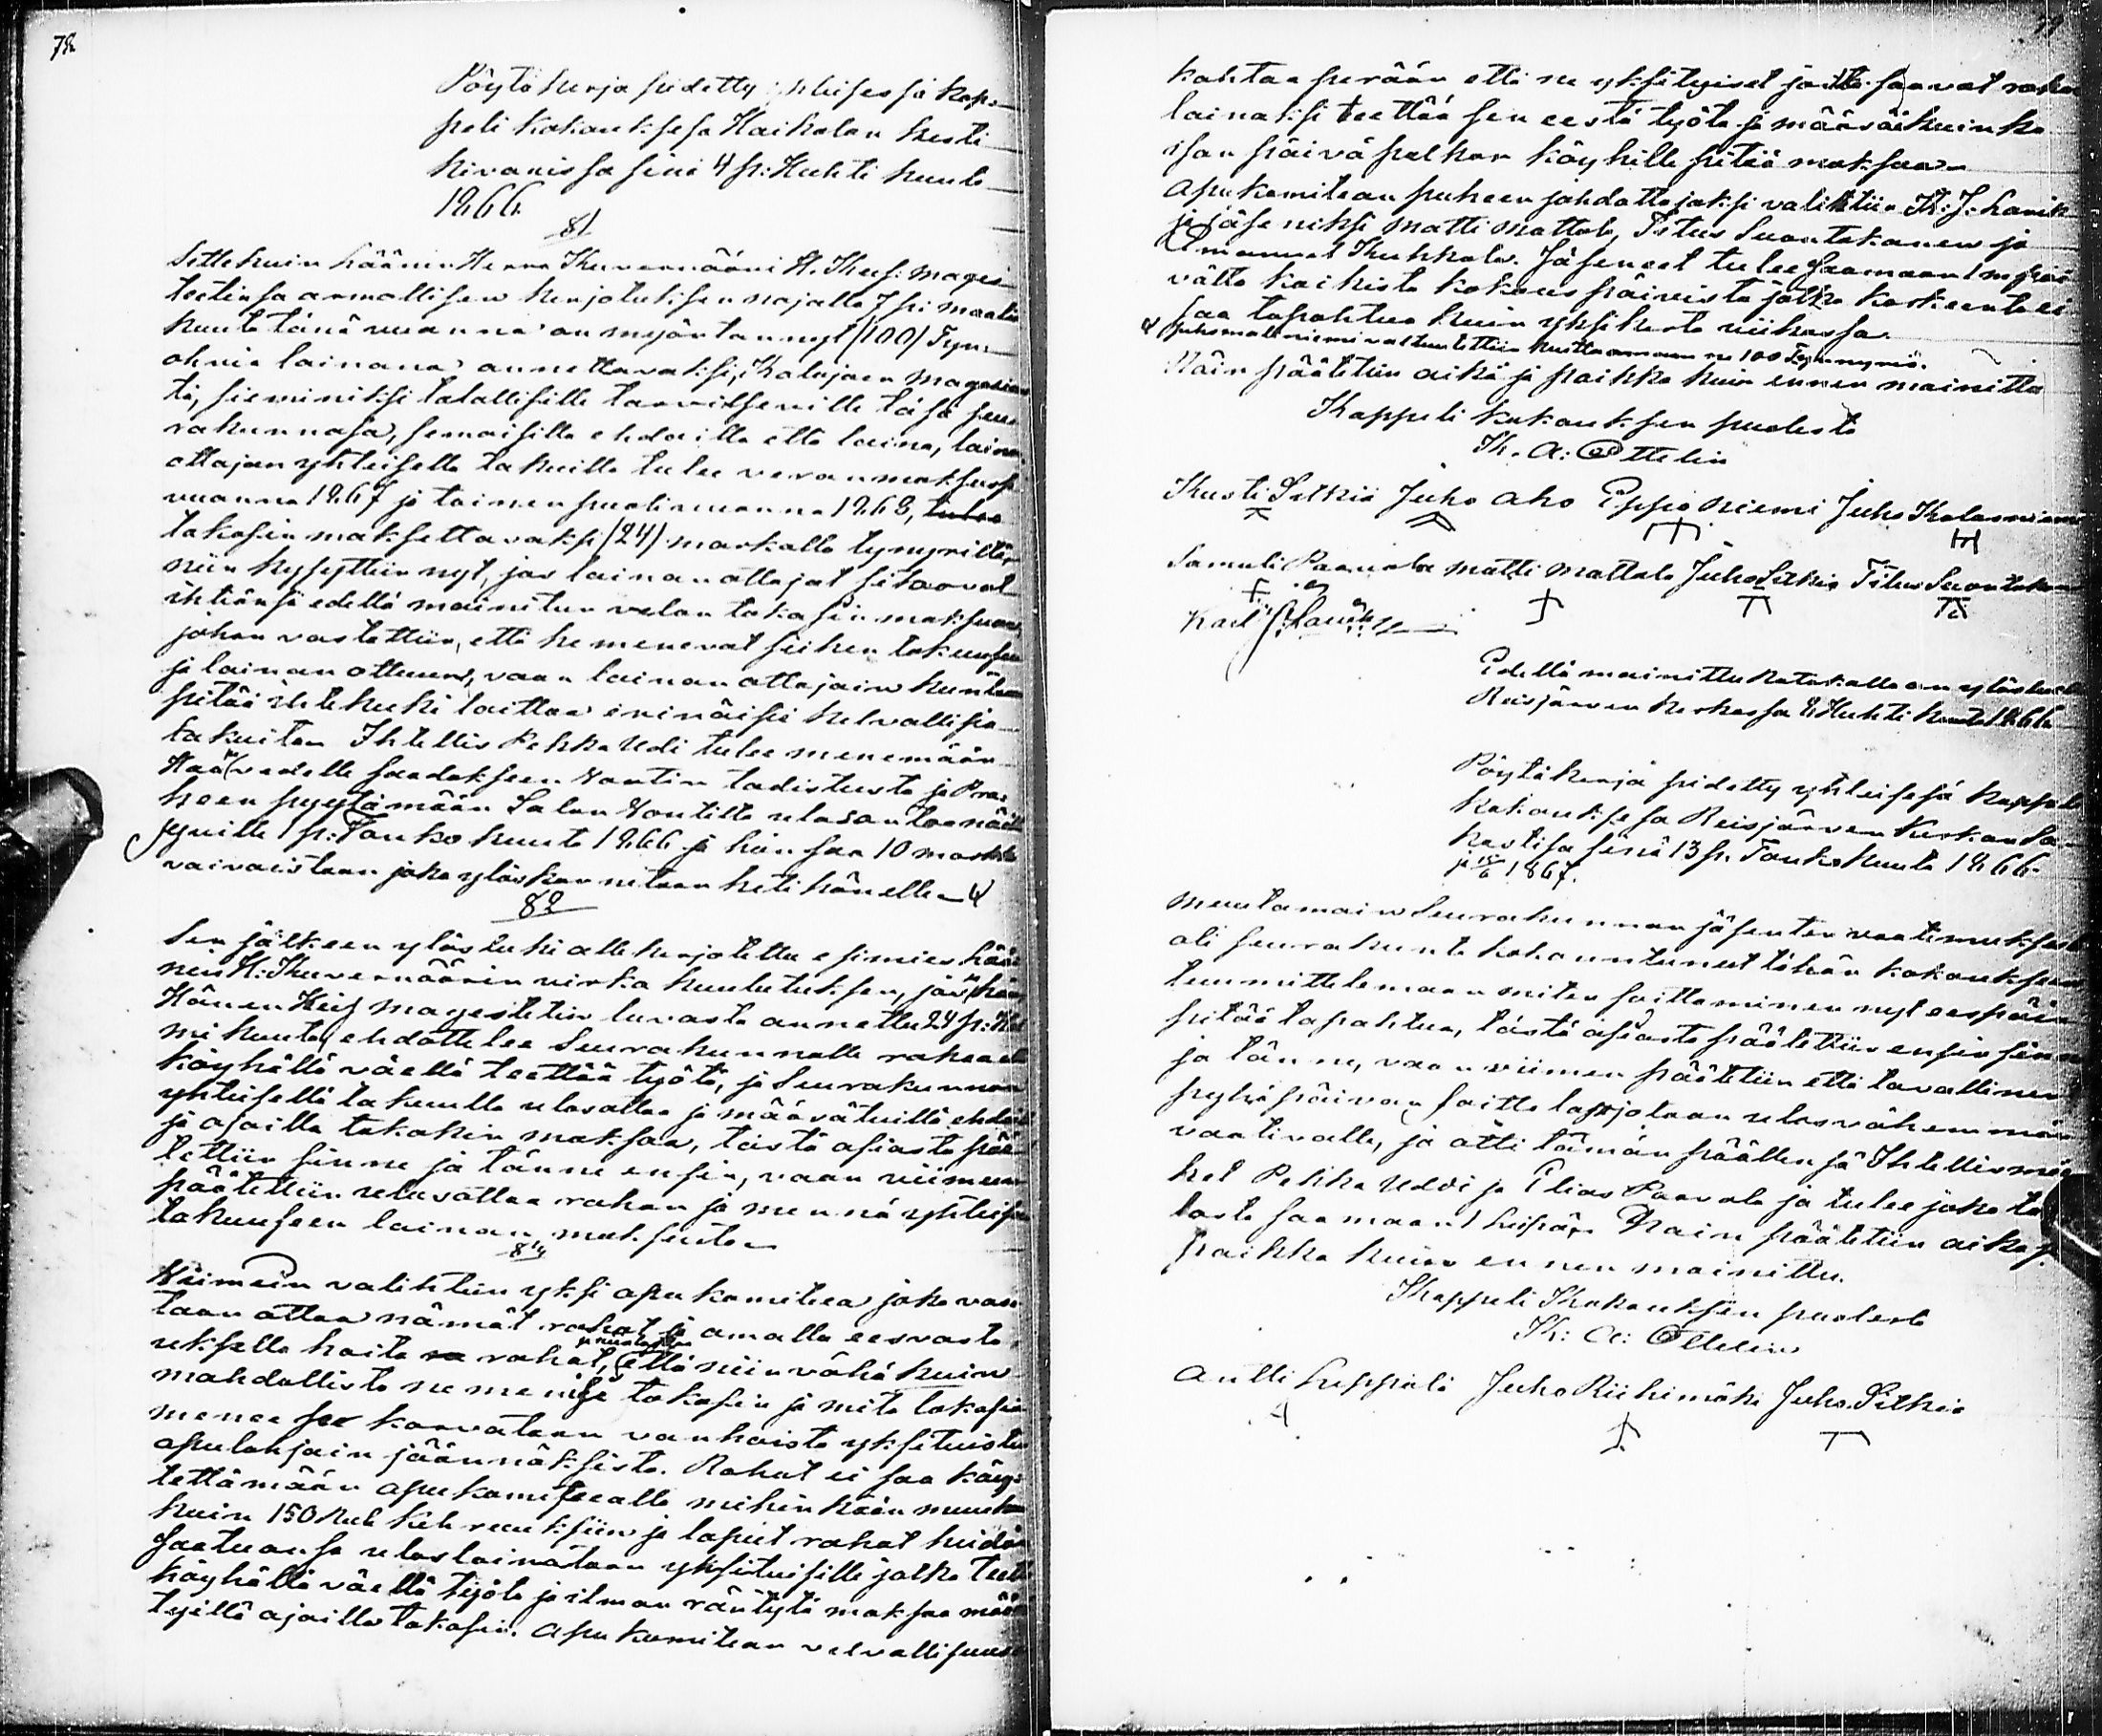 78
Pöytä kerja pidetty yhleisesjä kap-
peli kokouksesa Haikolan kesti
kivarissa sinä 4 p: Huhti kuuta
1866.
81
Sittekuin Läänin Herra Kuvernööri H. Keis: mages-
teetinsa armollisen kerjotuksen najalla 7 pi maalis
kuuta tänä vuonna on myöntännyt (100) Tyn-
öhria lainana annettavaksi, Kalajoen magasinis
ta, sieminiksi talallisille tarvitseville täsä seu-
rakunnasa, semaisilla ehdoilla että laina, lainan
ottajan yhteisellä takuilla tulee veron maksusa
vuonna 1867 ja toinen puoli vuonna 1868, tulee
takasin maksettavaksi (24) markalla tynyriltä,
niin kysyttiin nyt, jos lainan ottajat sitoovat
ihtiänsä edellä mainitun velan takasin maksuun,
johon vastattiin, että he menevat siihen takuusen
ja lainan ottuun, vaan lainan ottajain kuntaan
pitää ihtekuki laittaa erinäisiä kelvallisia
takuiten Ihtellis Pekka Udi tulee menemään
Haapavedelle saadakseen Voutin todistusta ja Praa-
heen pyytämään Salon Voutilta ulosantoa näille
jyville 1 p: Touko kuuta 1866 ja hän saa 10 markka
vaivaistaan joka ylöskannetaan heti hänelle
82
Sen jälkeen ylösluki allekerjotettu esimies Lää-
nin H: Kuvernöörin virka kuulutuksen, jos hän
Hänen Keis Magestetin luvasta annettu 24 p: Hel
mi kuuta ehdottelee Seurakunnalle rahaa etta
köyhällä väellä teettää työtä, ja Seurakunnan
yhteisellä takuulla ulosottaa ja määrätyillä ehdoilla
ja ajoilla takasin maksaa, tästä asiasta pää-
tettiin sinne ja tänne ensin, vaan viimeen
päätettiin ulosottaa rahan ja mennä yhteisen
takuuseen lainan maksusta
83
Viimein valihtiin yksi apu komitea joka vas-
taan ottaa nämät rahat ja amalla eesvasta-
uksella hoita ra rahat, että niin vähä kuin
mahdollista ne menisi takasin ja mitä takasin
menee se korvataan vanhoista yksituistu
apulahjain jäännöksistä. Rahat ei saa käy-
tettämään apukomiteealta mihin kään muuhun
kuin 150 Rub kehruuksiin ja loput rahat heidän
saatuansa ulos lainataan yksituisille jotka teettä
köyhällä väellä työtä ja ilman räntytä maksaa mää
tyillä ajoilla takasin. Apu komitean velvallisuus
79
kahtaa perään että ne yksityiset joitta saavat rahan
lainaksi teettää sen eestä työtä ja määrää kuinka
ison päiväpalkan köyhille pitää maksaa
Apukomitean puheen johdattajaksi valittiin K: J: Lavik
ja jäseniksi Matti Mattala, Titus Suontakanen ja
Emanuel Kuhkala. Jäsenet tulee saamaan 1 m päi-
vältä kaikista kokous päivistä jotka korkeenta ei
saa tapahtua kuin yksi kerta viikossa.
Juho Maliniemi valtuutettiin kuittaamaan ne 100 Tynnyriä.
Näin päätetiin aika ja paikka kuin ennen mainittu
Kappeli kokouksen puolesta
K. A: Ottelin
Kusti Sitkiä Juho Aho Eppo Niemi Juho Kalaoniemi
Samuli Paavola Matti Mattala Juho Sitkiä Titus Suontaka
Karl J. Lavik
Edellä mainittu Ratukalla on ylösluettu
Reisjärven kirkossa 8 Huhti kuuta 1866
Pöytäkerja pidetty yhteisesä kappeli
kokouksesa Reisjärven Kirkon Sa-
kastisa sinä 13 p. Touko kuuta 1866.
1867.
Muutamain Seurakunnan jäsenten vaatimuksesta
oli seurakunta kokountunut tähän kokoukseen
tuumittelemaan miten soittaminen nyt eespäin
pitää tapahtua, tästä asiasta päätettiin ensin sinne
ja tänne, vaan viimen päätetiin että tavallinen
pyhäpäivän soitto tarjotaan ulos vähemmän
vaativalle, ja otti tämän päällensä Ihtellismie-
het Pekka Uddi ja Elias Paavola ja tulee joka ta-
losta saamaan 1 leipä. Näin päätetiin aika ja
paikka kuin ennen mainittu.
Kappeli Kokouksen puolesta
K: A: Ottelin
Antti Leppälä Juho Riihimäki Juho Sitkiä